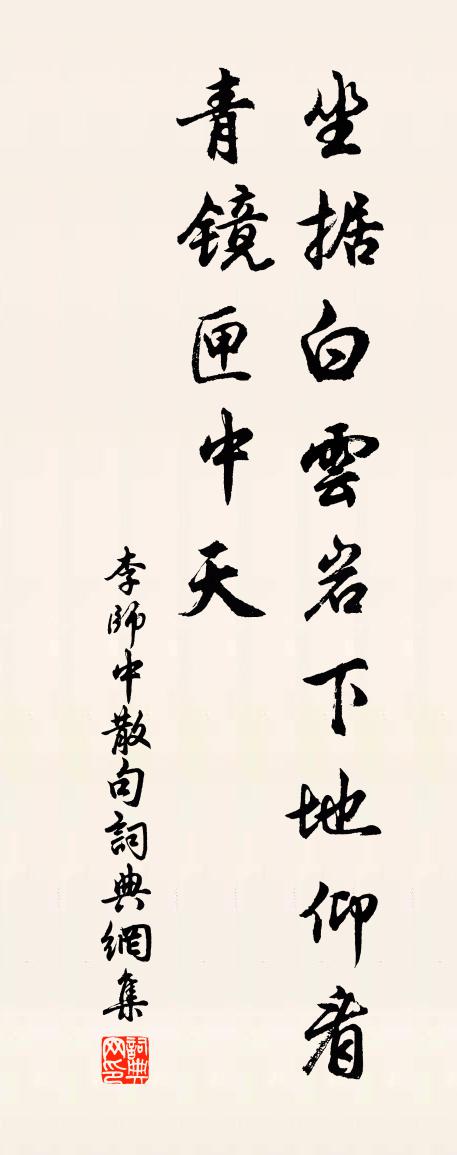 坐据白雲岩下地仰看
青镜匣中天
李師中散句詞典網集
詞典网印